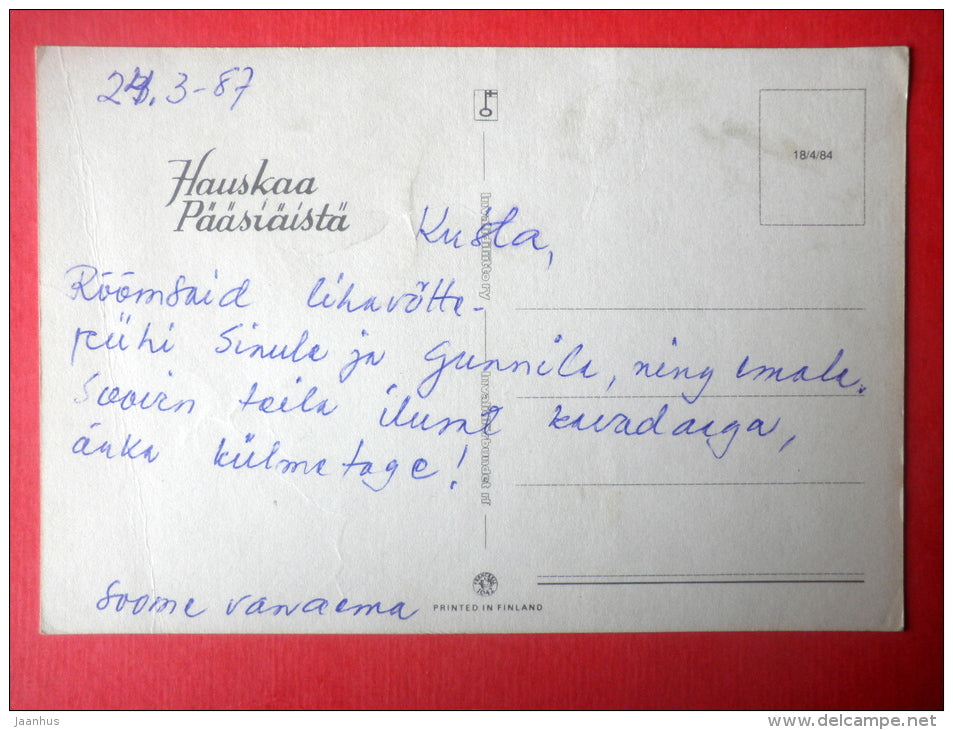 24.3-87
18/4/84
Hauskaa
Pääsiäistä
Kusta,
Rõõmsaid lihavõtte-
pühi Sinule ja Gunnila, ning emale.
Soovin teila ilusat kevadaega,
ärka külmetage!
Soome vanaema
Invalidiliitto ry
Invalidförbundet rf
PRINTED IN FINLAND
jaanhus
www.delcampe.net